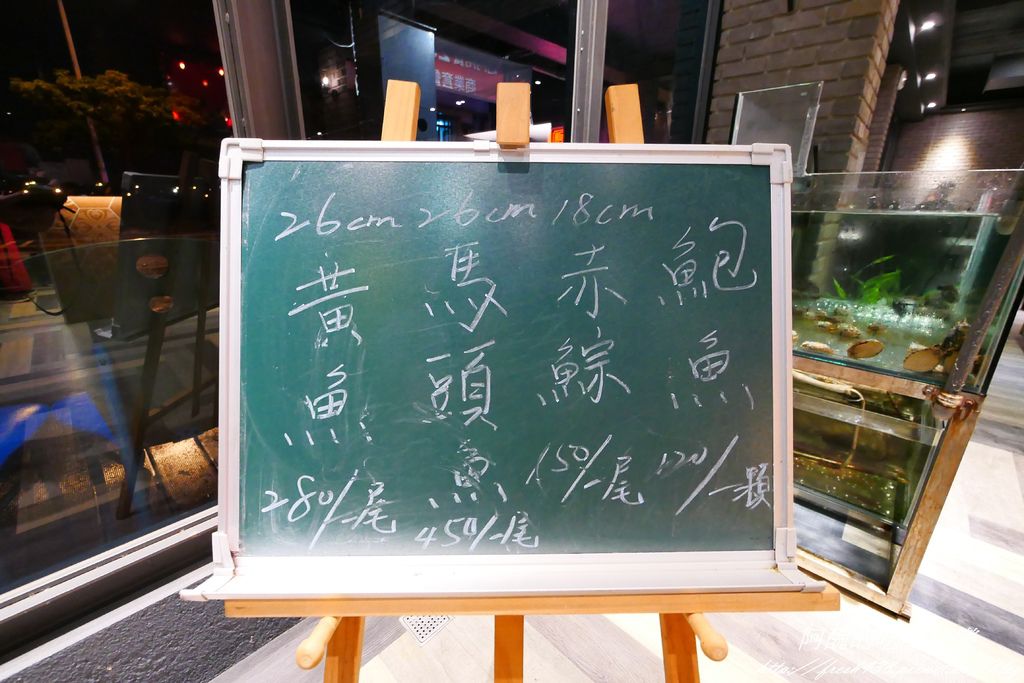 26cm
黃魚
280/一尾
26cm
馬頭魚
450/一尾
18cm
赤鯮
150/一尾
鮑魚
120/一顆